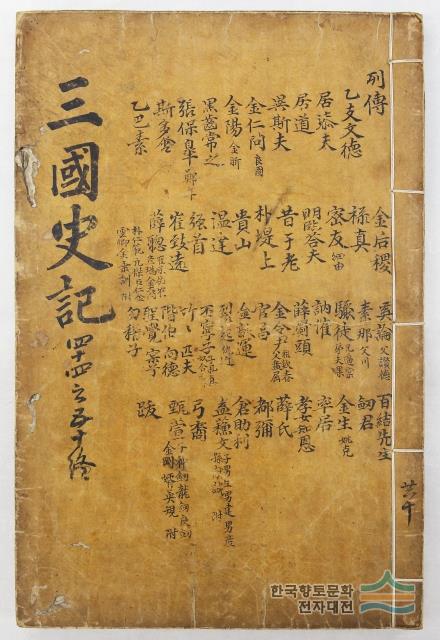 列傳
乙支文德
居柒夫
居道
異斯夫
金仁問 良圖
金陽 金昕
黑齒常之
張保皐 鄭年
斯多含
乙巴素
金后稷
祿真
密友 紐由
明臨答夫
昔于老
朴堤上
貴山
溫達
强首
崔致遠
薛聰
奚論 父讚德
素那
驟徒
訥催
薛罽頭
金令胤
官昌
金歆運
裂起
丕寧子
竹竹 匹夫
階伯 向德
聖覺 實兮
勿稽子
百結先生
劒君
金生
率居
孝女知恩
薛氏
都彌
倉助利
蓋蘇文
弓裔
甄萱
跋
三國史記 四十四之五十終
共十
한국향토문화
전자대전